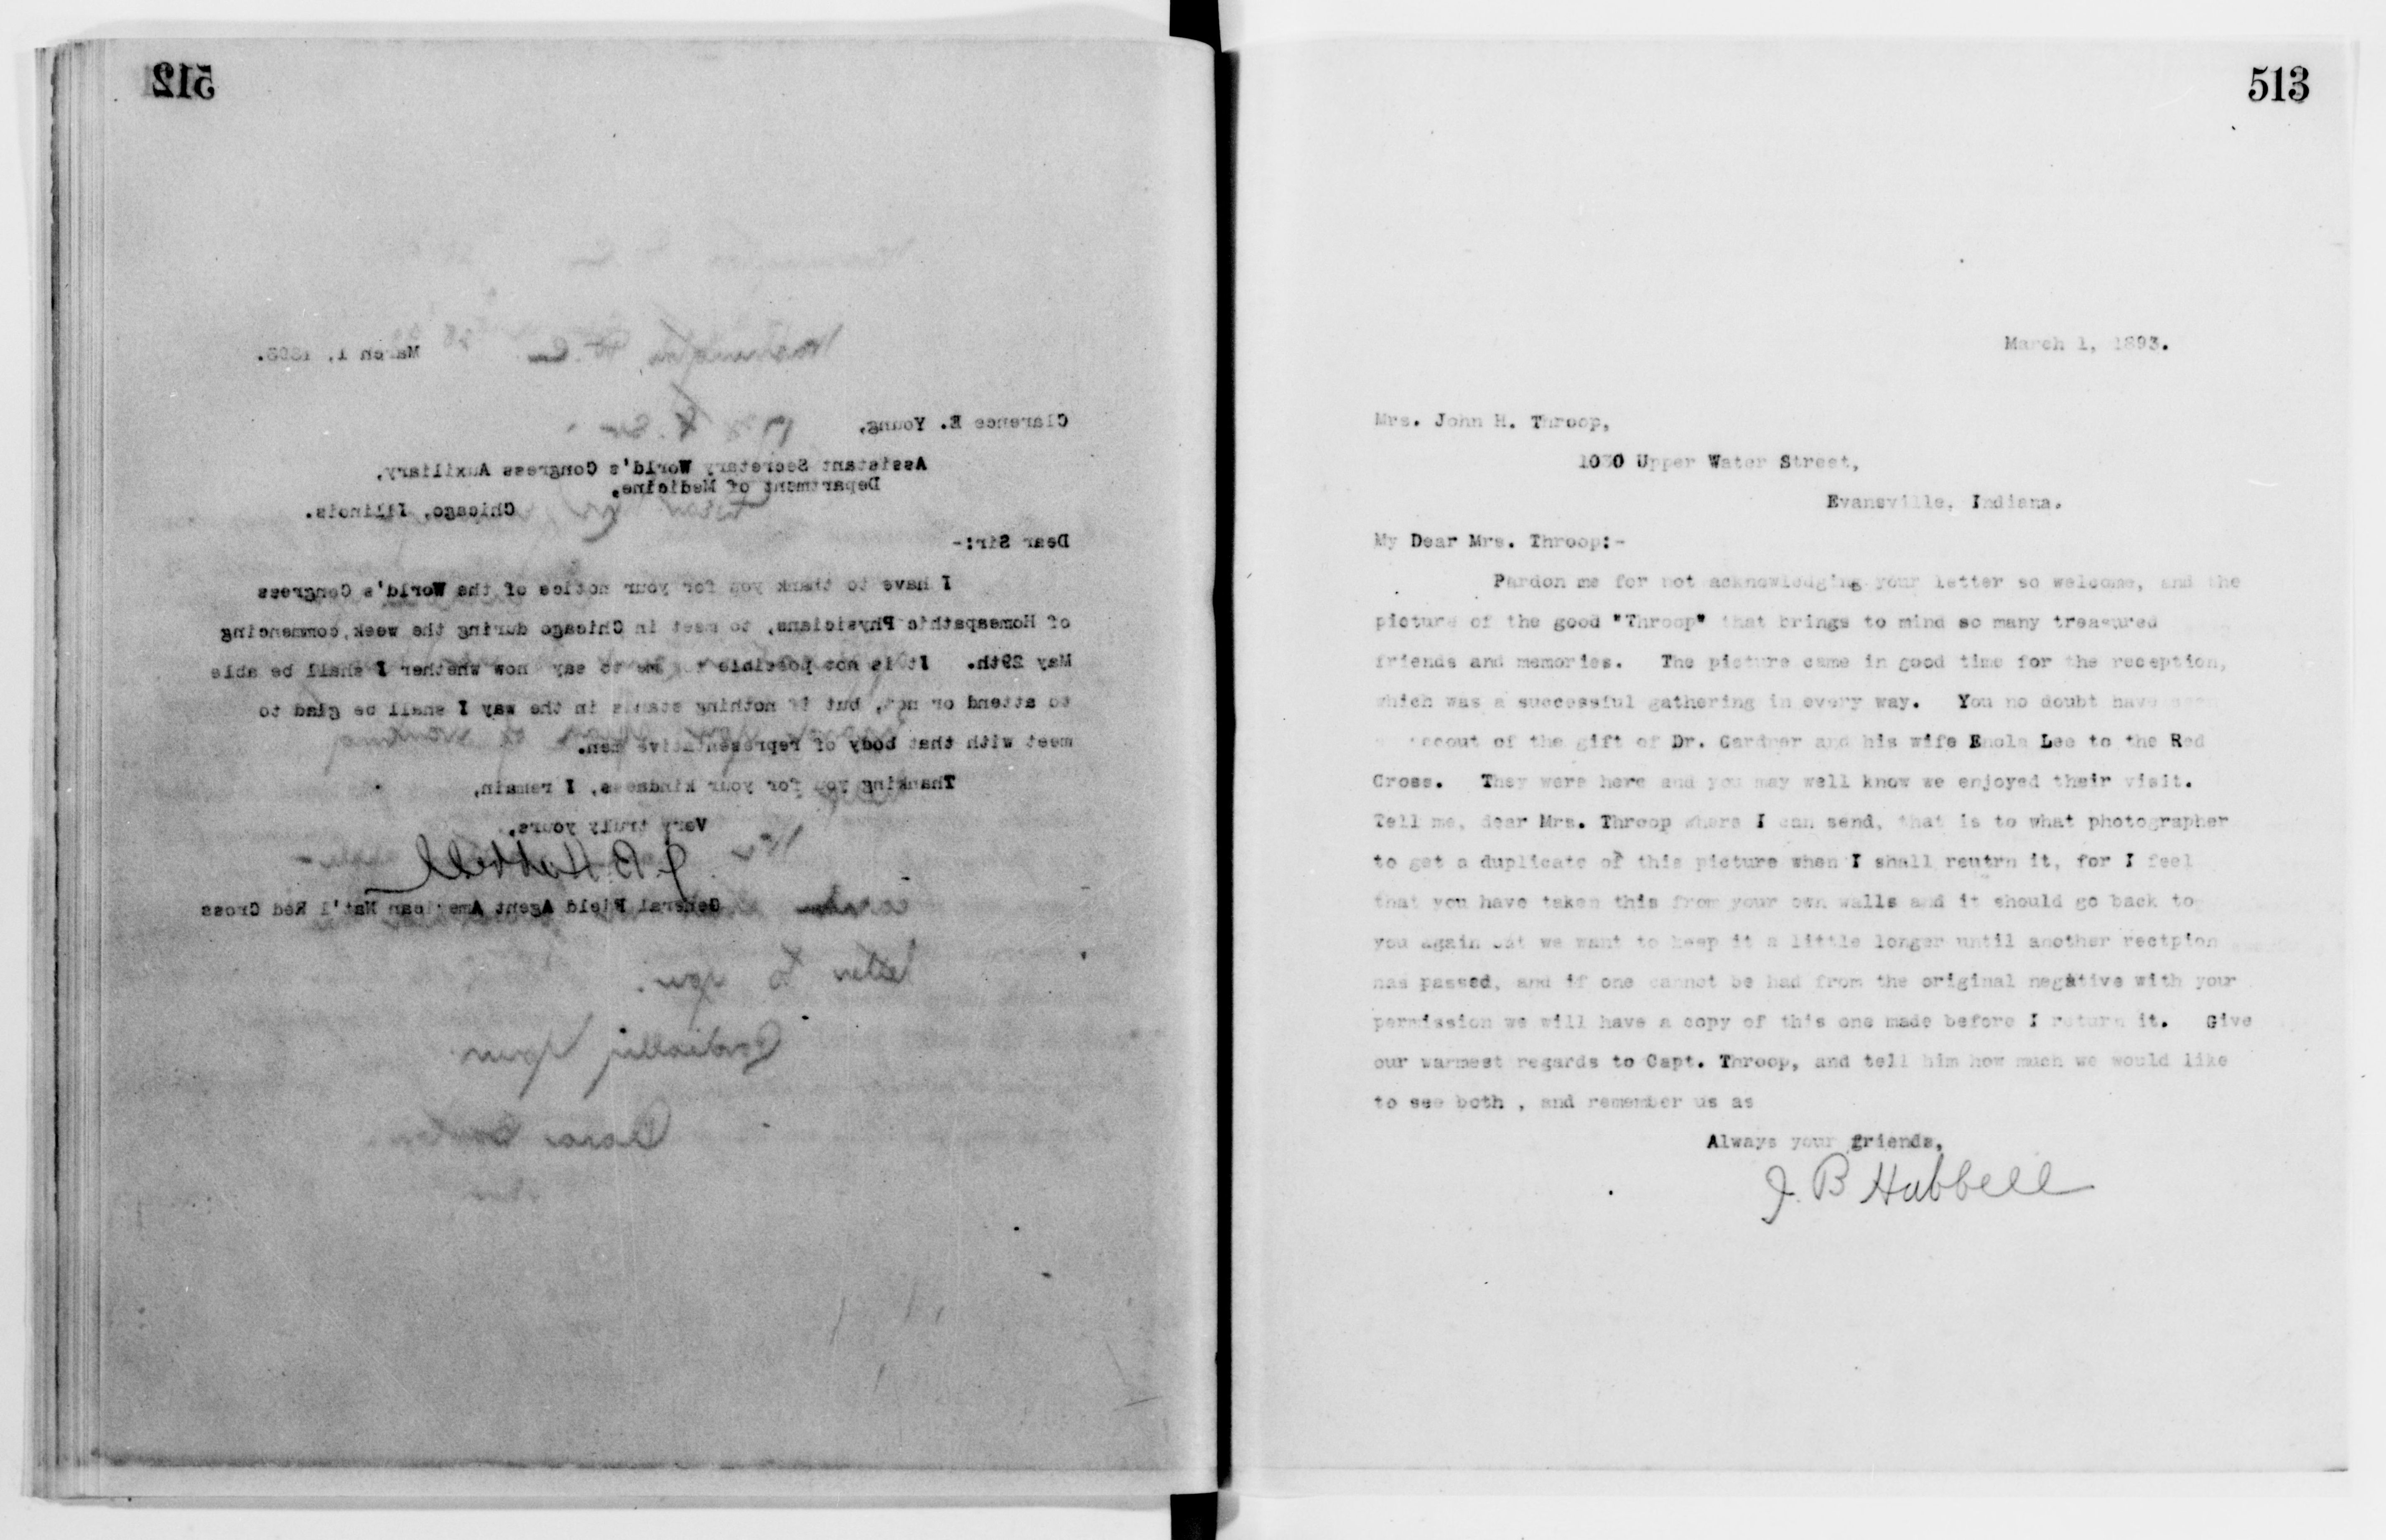 512
March 1, 1893.
Clarence E. Young,
Assistant Secretary World's Congress Auxiliary,
Department of Medicine,
Chicago, Illinois.
Dear Sir:-
I have to thank you for your notice of the World's Congress
of Homeapathic Physicians, to meet in Chicago during the week, commencing
May 29th. It is not possible me to say now whether I shall be able
to attend or not, but if nothing stands in the way I shall be glad to
meet with that body of representative men.
Thanking you for your kindness, I remain,
Very truly yours,
J. B. Hubbell
General Field Agent American Nat'l Red Cross
letter to you.
Cordially yours
Clara Barton
513
March 1, 1893.
Mrs. John H. Throop,
1030 Upper Water Street,
Evansville, Indiana.
My Dear Mrs. Throop:-
Pardon me for not acknowledging your letter so welcome, and the
picture of the good "Throop" that brings to mind so many treasured
friends and memories. The picture came in good time for the reception,
which was a successful gathering in every way. You no doubt have seen
accout of the gift of Dr. Gardner and his wife Enola Lee to the Red
Cross. They were here and you may well know we enjoyed their visit.
Tell me, dear Mrs. Throop where I can send, that is to what photographer
to get a duplicate of this picture when I shall reutrn it, for I feel
that you have taken this from your own walls and it should go back to
you again but we want to keep it a little longer until another rectpion
has passed, and if one cannot be had from the original negative with your
permission we will have a copy of this one made before I return it. Give
our warmest regards to Capt. Throop, and tell him how much we would like
to see both , and remember us as
Always your friends,
J. B Hubbell